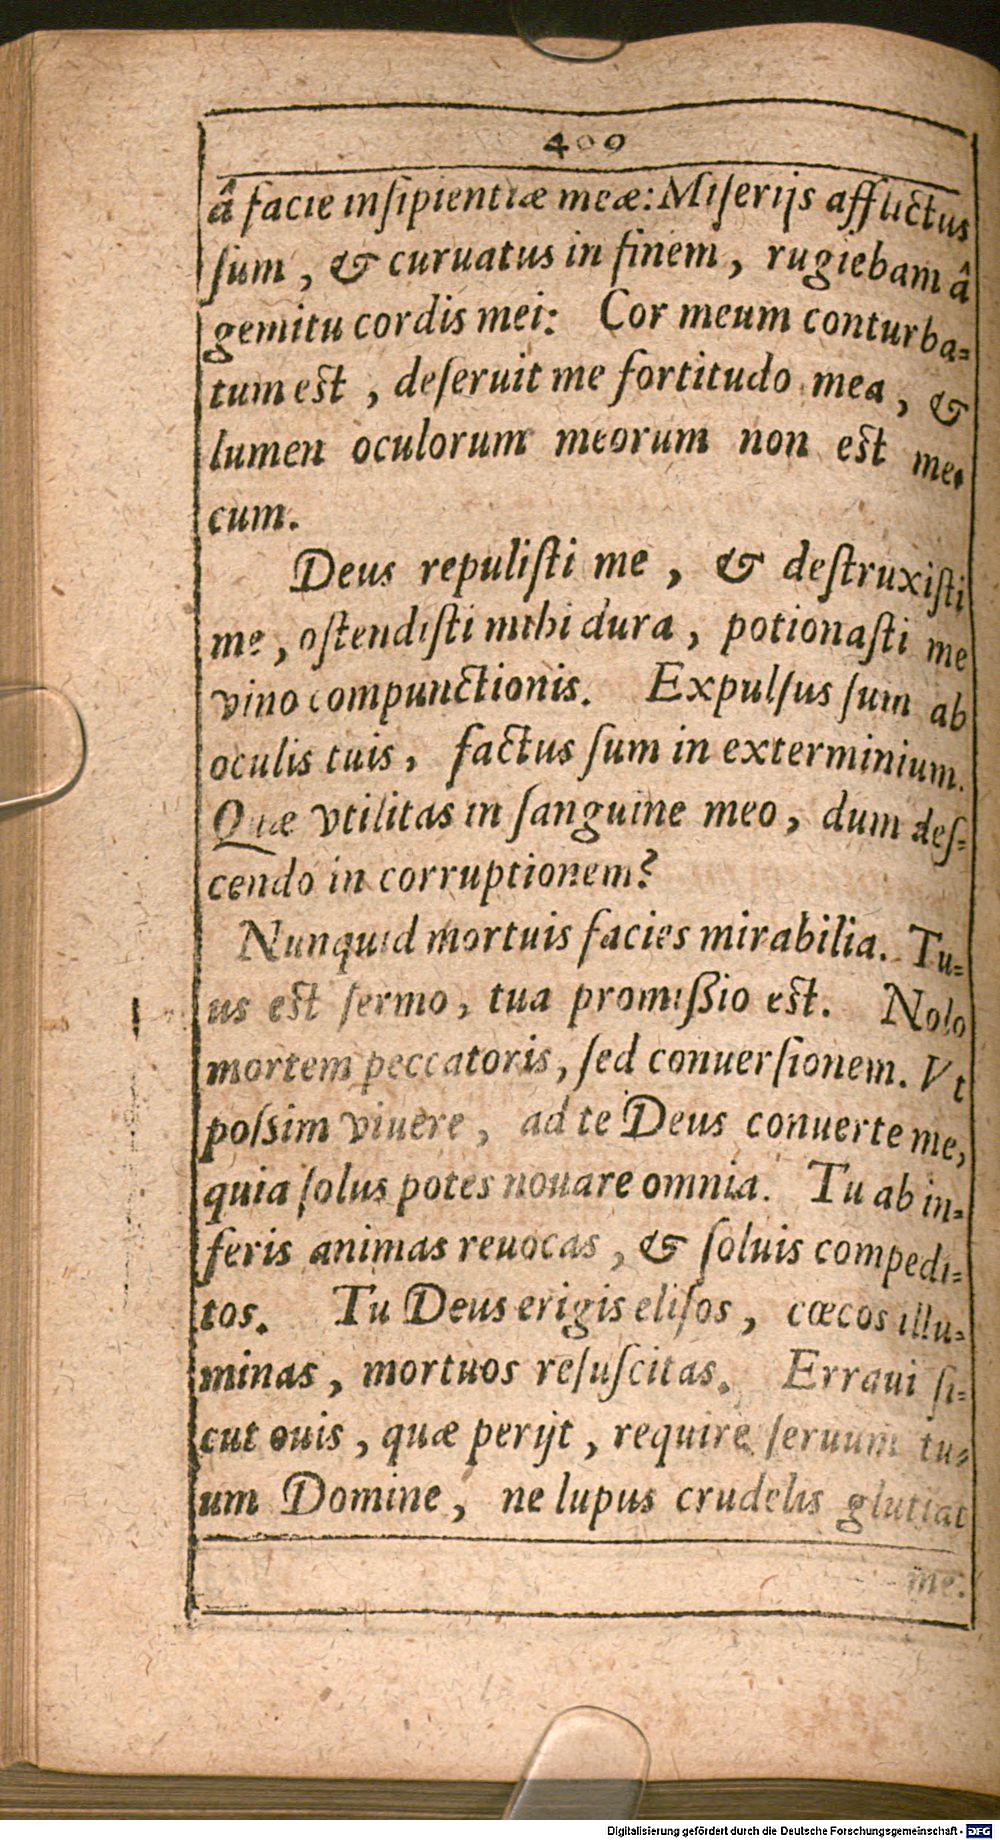 409
â facie inſipientiæ meæ: Miſerijs afflictus
ſum, & curuatus in finem, rugiebam â
gemitu cordis mei: Cor meum conturba=
tum eſt, deſeruit me fortitudo mea, &
lumen oculorum meorum non eſt me=
cum.
Deus repuliſti me, & deſtruxiſti
me, oſtendiſti mihi dura, potionaſti me
vino compunctionis. Expulſus ſum ab
oculis tuis, factus ſum in exterminium.
Quæ vtilitas in ſanguine meo, dum deſ=
cendo in corruptionem?
Nunquid mortuis facies mirabilia. Tu=
us eſt ſermo, tua promiſsio eſt. Nolo
mortem peccatoris, ſed conuerſionem. Vt
poſsim viuere, ad te Deus conuerte me,
quia ſolus potes nouare omnia. Tu ab in=
feris animas reuocas, & ſoluis compedi=
tos. Tu Deus erigis eliſos, cœcos illu=
minas, mortuos reſuſcitas. Erraui ſi=
cut ouis, quæ perijt, require ſeruum tu=
um Domine, ne lupus crudelis glutiat
me.
Digitalisierung gefördert durch die Deutsche Forschungsgemeinschaft - DFG